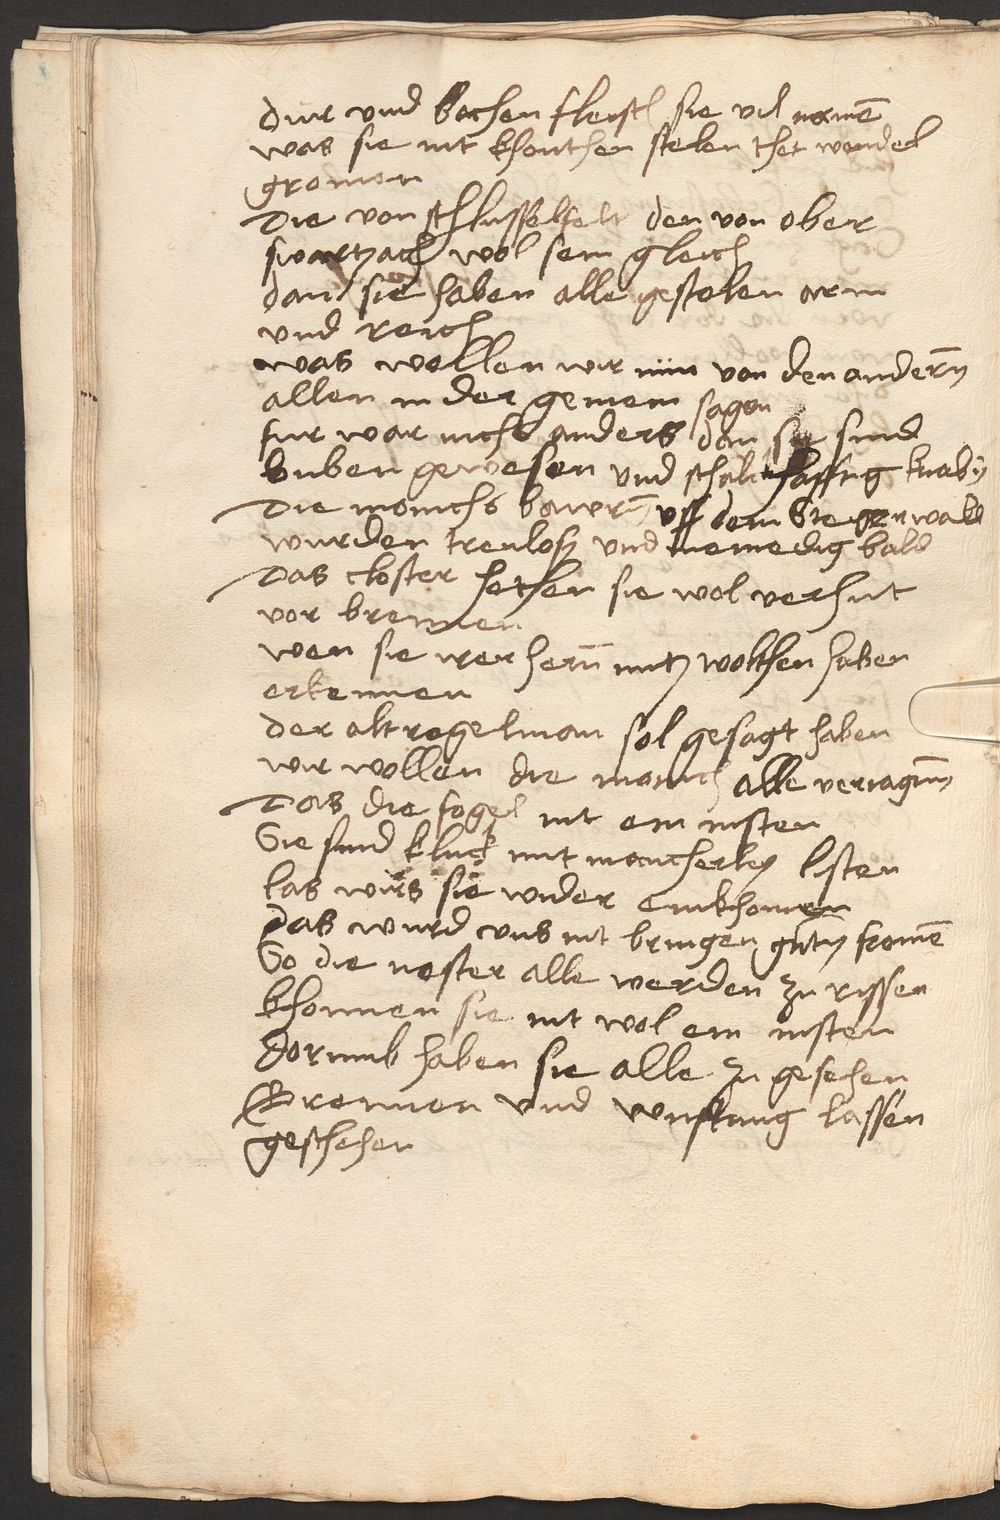 dur und bachen fleisch sie vil namē
was sie nit khonthen stelen thet wendel
gromon
Die von schlusselfelt den von ober
swartzach wol sein gleich
dan sie haben alle gestolen arm
und reich
was wollen wir nun von den andern̄
allen in der gemein sagen
fur war nicht anders dan sie sind
buben gewesen und schalckhafftig knabn̄
Die monichs bawrn̄ uff dem Steygerwalt
wurden treulosz und meinedig bald
Das closter hethen sie wol verhut
vor brennen
wen sie irer hern̄ nutz wolthen haben
erkennen
der alt regelman sol gesagt haben
wir wollen die monich alle veriagnn̄
Das die fogel nit ein nisten
Sie sind kluck mit mancherley listen
las wirs sie wider einkhomen
das wurd uns nit bringen gutn̄ fromē
So die nester alle werden zu rissen
khonnen sie nit wol ein nisten
dorumb haben sie alle zu gesehen
Brennen und wustung lassen
geschehen